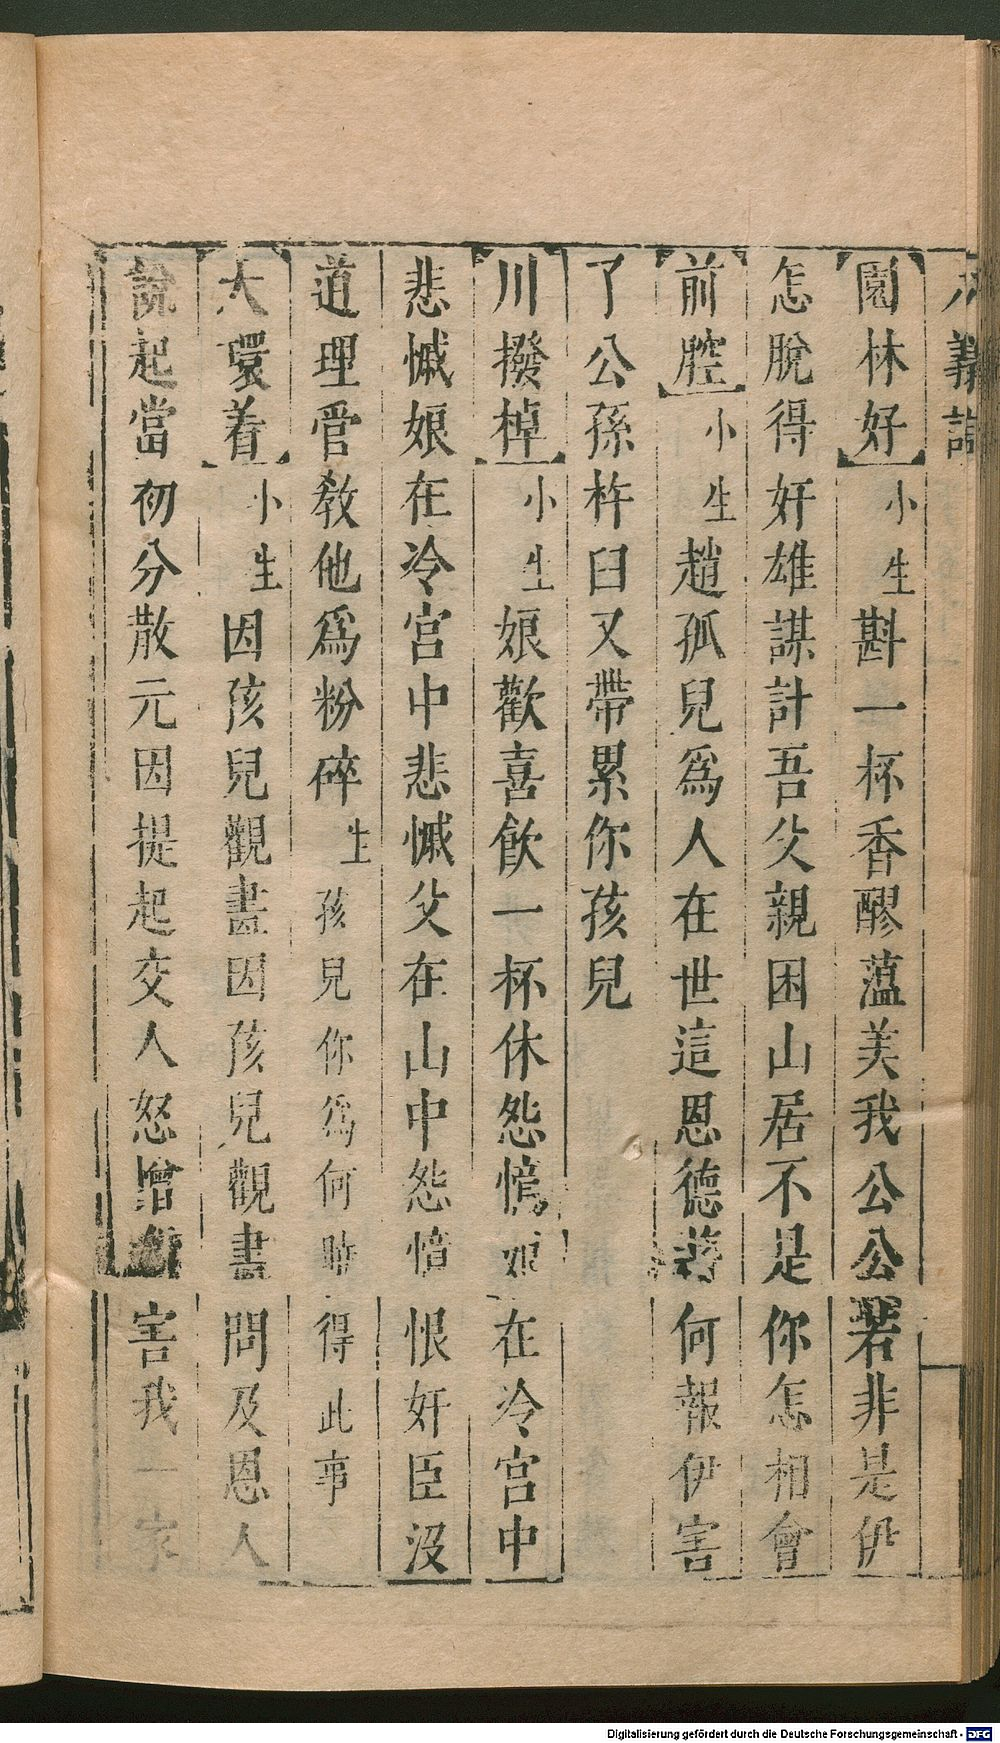 八義記
園林好 小生 斟一杯香醪藴美我公公若非是伊
怎脫得奸雄謀計吾父親困山居不是你怎相會
前腔 小生 趙孤兒爲人在世這恩德將何報伊害
了公孫杵臼又帶累你孩兒
川撥棹 小生 娘歡喜飮一杯休怨憶娘在冷宮中
悲慽娘在冷宮中悲慽父在山中怨憶恨奸臣沒
道理管教他爲粉碎 生 孩兒你爲何曉得此事
大環着 小生 因孩兒觀畫因孩兒觀畫問及恩人
說起當初分散元因提起交人怒增 害我一家
Digitalisierung gefördert durch die Deutsche Forschungsgemeinschaft - DFG